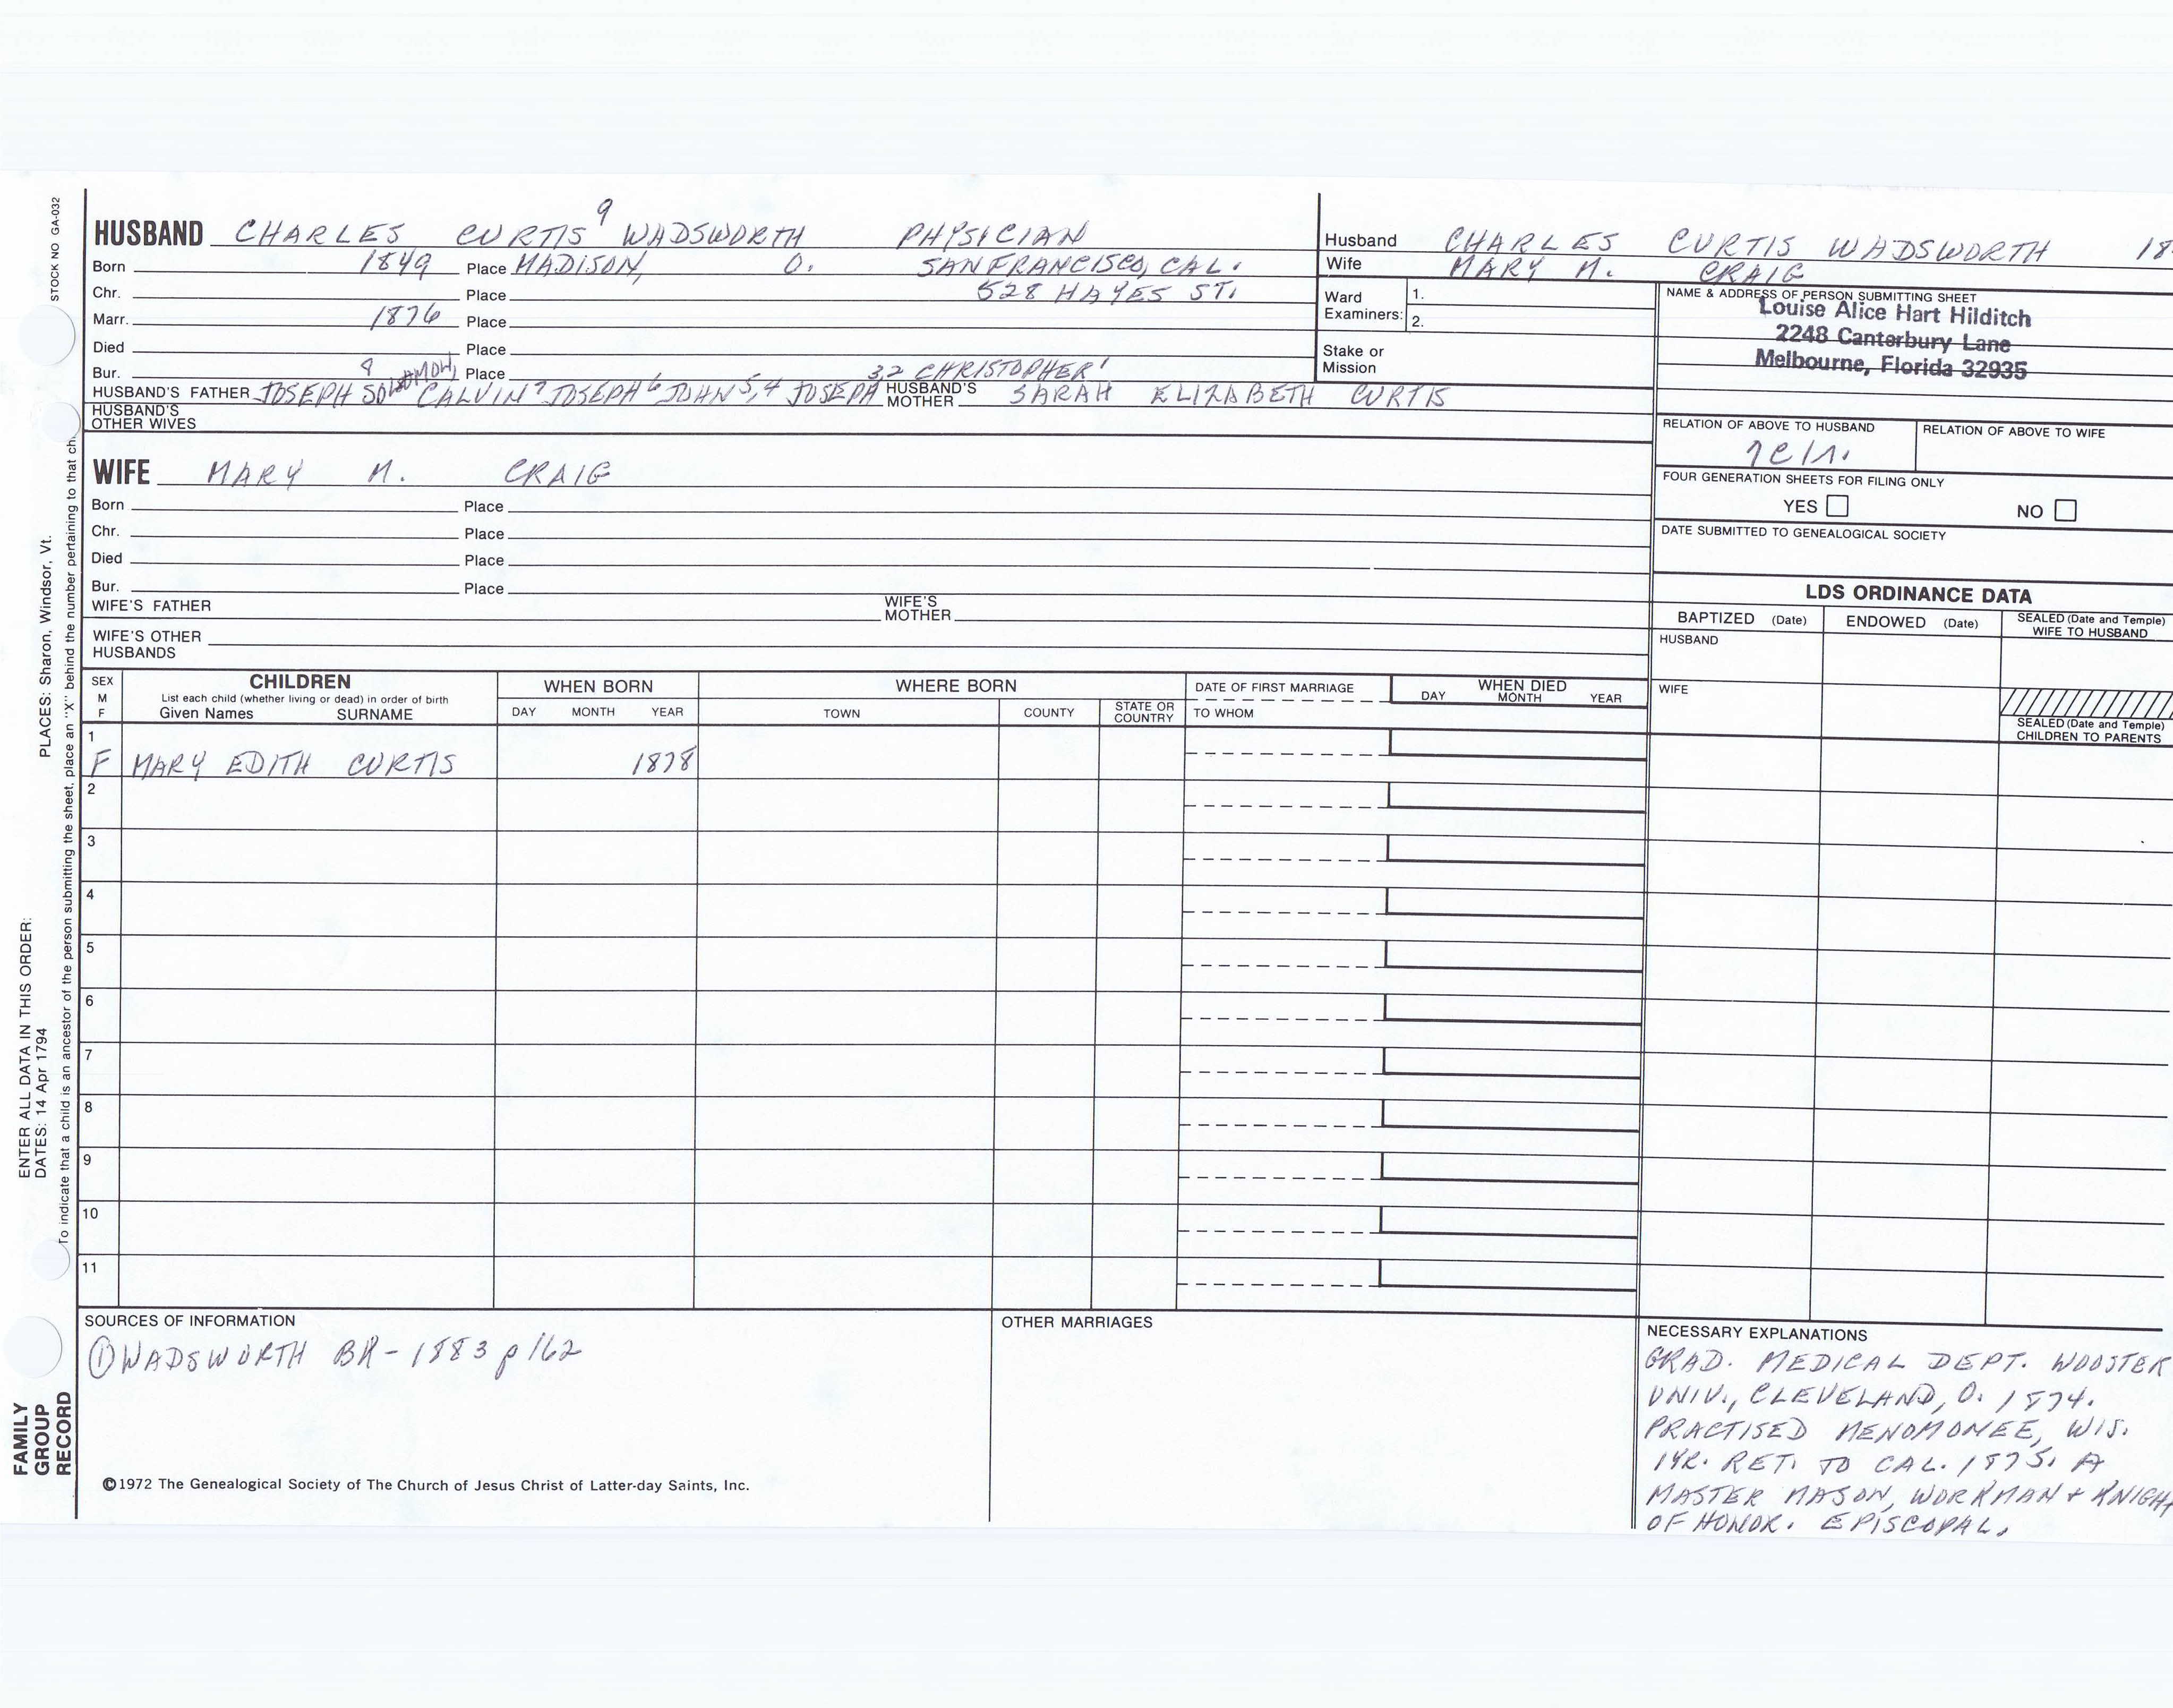 STOCK NO GA-032
HUSBAND CHARLES CURTIS 9 WADSWORTH PHYSICIAN
Born 1849 Place MADISON, O. SAN FRANCISCO, CAL.
Chr. Place 528 HAYES ST.
Marr. 1876 Place
Died Place
Bur. Place
HUSBAND'S FATHER JOSEPH 8 CALVIN 7 JOSEPH 6 JOHN 5,4 JOSEPH 3,2 CHRISTOPHER 1
HUSBAND'S MOTHER SARAH ELIZABETH CURTIS
HUSBAND'S OTHER WIVES
WIFE MARY M. CRAIG
Born Place
Chr. Place
Died Place
Bur. Place
WIFE'S FATHER WIFE'S MOTHER
WIFE'S OTHER HUSBANDS
Husband CHARLES CURTIS WADSWORTH 18
Wife MARY M. CRAIG
Ward Examiners: 1.
2.
Stake or Mission
NAME & ADDRESS OF PERSON SUBMITTING SHEET
Louise Alice Hart Hilditch
2248 Canterbury Lane
Melbourne, Florida 32935
RELATION OF ABOVE TO HUSBAND RELATION OF ABOVE TO WIFE
FOUR GENERATION SHEETS FOR FILING ONLY
YES NO
DATE SUBMITTED TO GENEALOGICAL SOCIETY
LDS ORDINANCE DATA
BAPTIZED (Date) ENDOWED (Date) SEALED (Date and Temple) WIFE TO HUSBAND
HUSBAND
WIFE
SEALED (Date and Temple) CHILDREN TO PARENTS
SEX M F
CHILDREN
List each child (whether living or dead) in order of birth
Given Names SURNAME
WHEN BORN
DAY MONTH YEAR
WHERE BORN
TOWN COUNTY STATE OR COUNTRY
DATE OF FIRST MARRIAGE
TO WHOM
WHEN DIED
DAY MONTH YEAR
1
F MARY EDITH CURTIS 1878
2
3
4
5
6
7
8
9
10
11
SOURCES OF INFORMATION
① WADSWORTH BK-1883 p162
OTHER MARRIAGES
NECESSARY EXPLANATIONS
GRAD. MEDICAL DEPT. WOOSTER
UNIV., CLEVELAND, O. 1874.
PRACTISED MENOMONEE, WIS.
1 YR. RET. TO CAL. 1875. A
MASTER MASON, WORKMAN + KNIGHT
OF HONOR. EPISCOPAL.
©1972 The Genealogical Society of The Church of Jesus Christ of Latter-day Saints, Inc.
FAMILY
GROUP
RECORD
ENTER ALL DATA IN THIS ORDER:
DATES: 14 Apr 1794 PLACES: Sharon, Windsor, Vt.
To indicate that a child is an ancestor of the person submitting the sheet, place an "X" behind the number pertaining to that ch